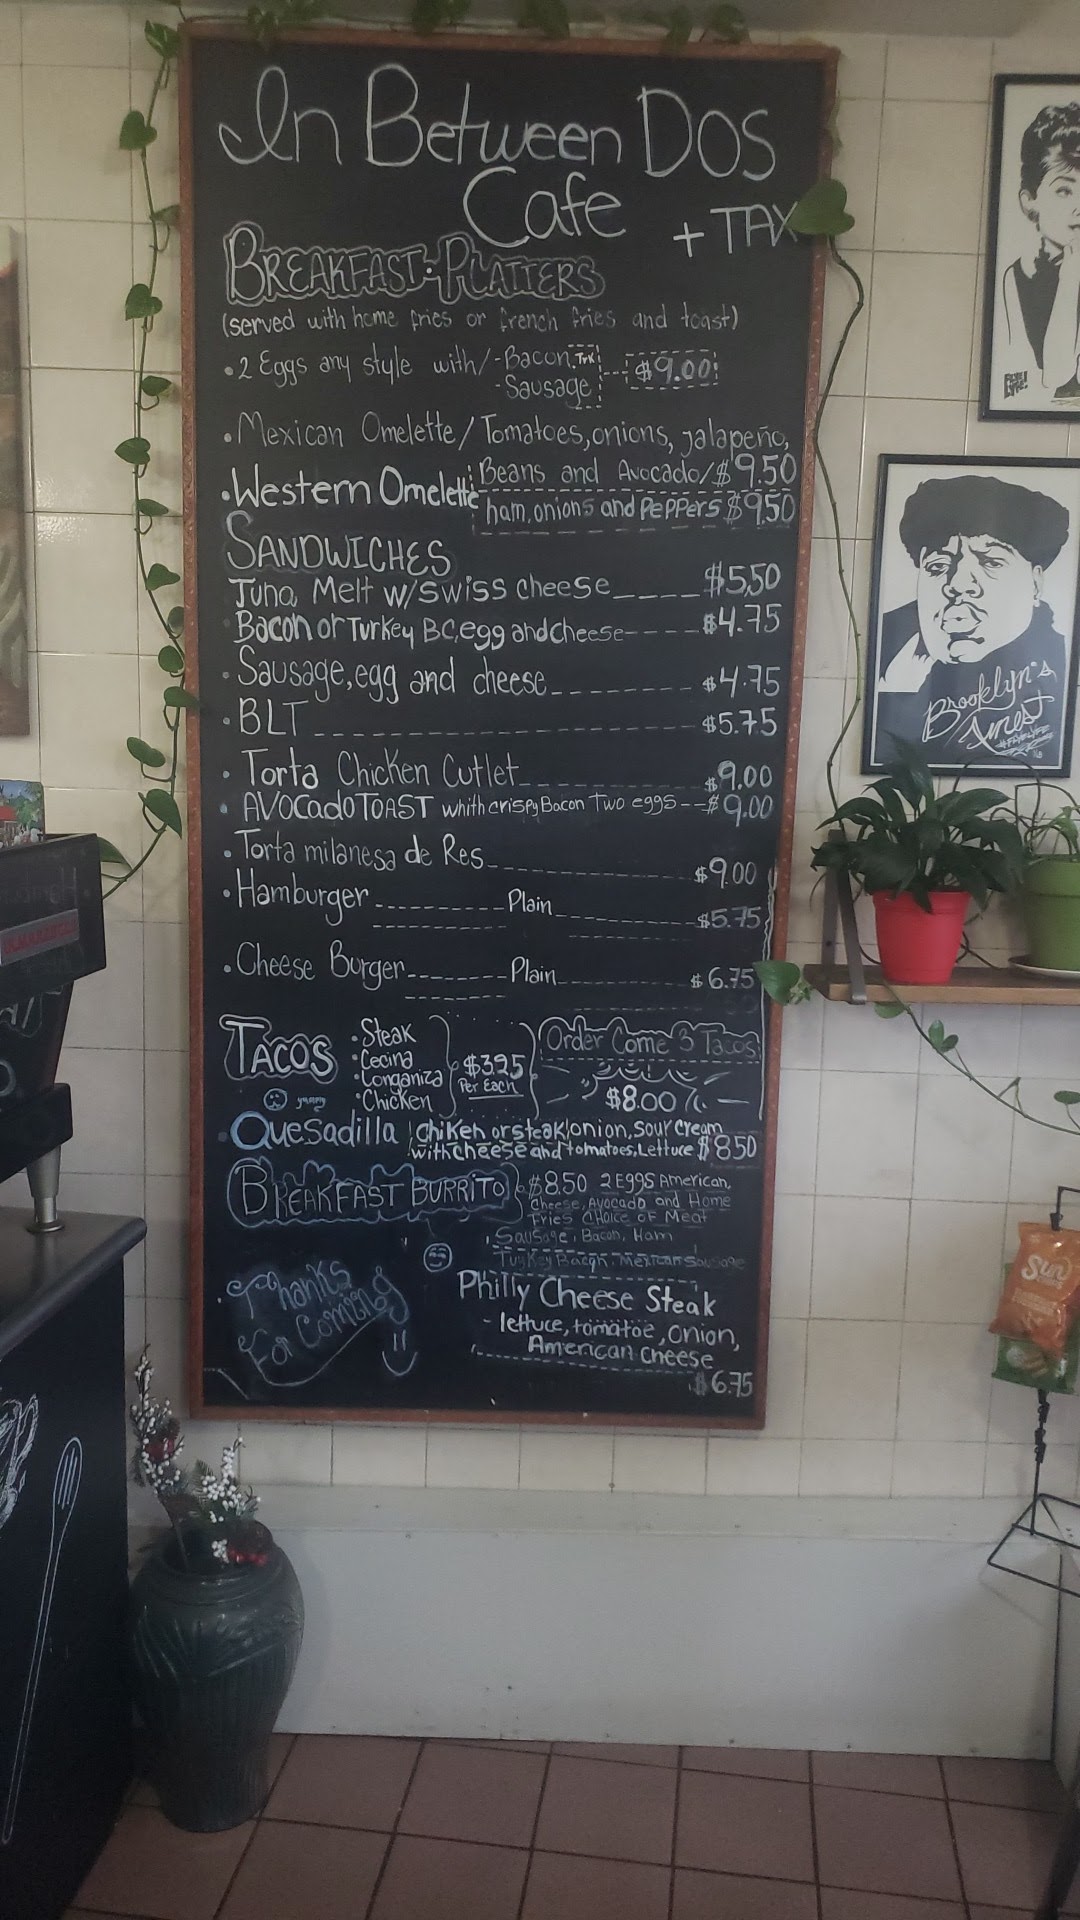 In Between Dos
Cafe
+ TAX
BREAKFAST·PLATTERS
(served with home fries or french fries and toast)
•2 Eggs any style with/-Bacon, TrK $9.00
-Sausage
•Mexican Omelette/Tomatoes,onions, jalapeño,
Beans and Avocado/$9.50
•Western Omelette ham,onions and PePPers $9.50
SANDWICHES
Tuna Melt w/swiss cheese____$5.50
Bacon or Turkey BC,egg and cheese----$4.75
•Sausage,egg and cheese--------$4.75
•BLT--------$5.75
•Torta Chicken Cutlet--------$9.00
•AVOCado TOAST whith crispy Bacon Two eggs--$9.00
•Torta milanesa de Res--------$9.00
•Hamburger--------Plain--------$5.75
•Cheese Burger--------Plain--------$6.75
TACOS
•Steak
•Cecina
•Longaniza
•Chicken
$3.25
Per Each
Order Come 3 Tacos
$8.00
yummy
Quesadilla chiken or steak onion, sour cream
with cheese and tomatoes, Lettuce $8.50
BREAKFAST BURRITO $8.50 2 EGGS American,
Cheese, Avocado and Home
Fries CHOICE OF Meat
Sausage, Bacon, Ham
Turkey Bacon, Mexican Sausage
Thanks
For Coming
Philly Cheese Steak
- lettuce, tomatoe, onion,
American cheese
$6.75
Brooklyn's
finest
Sun